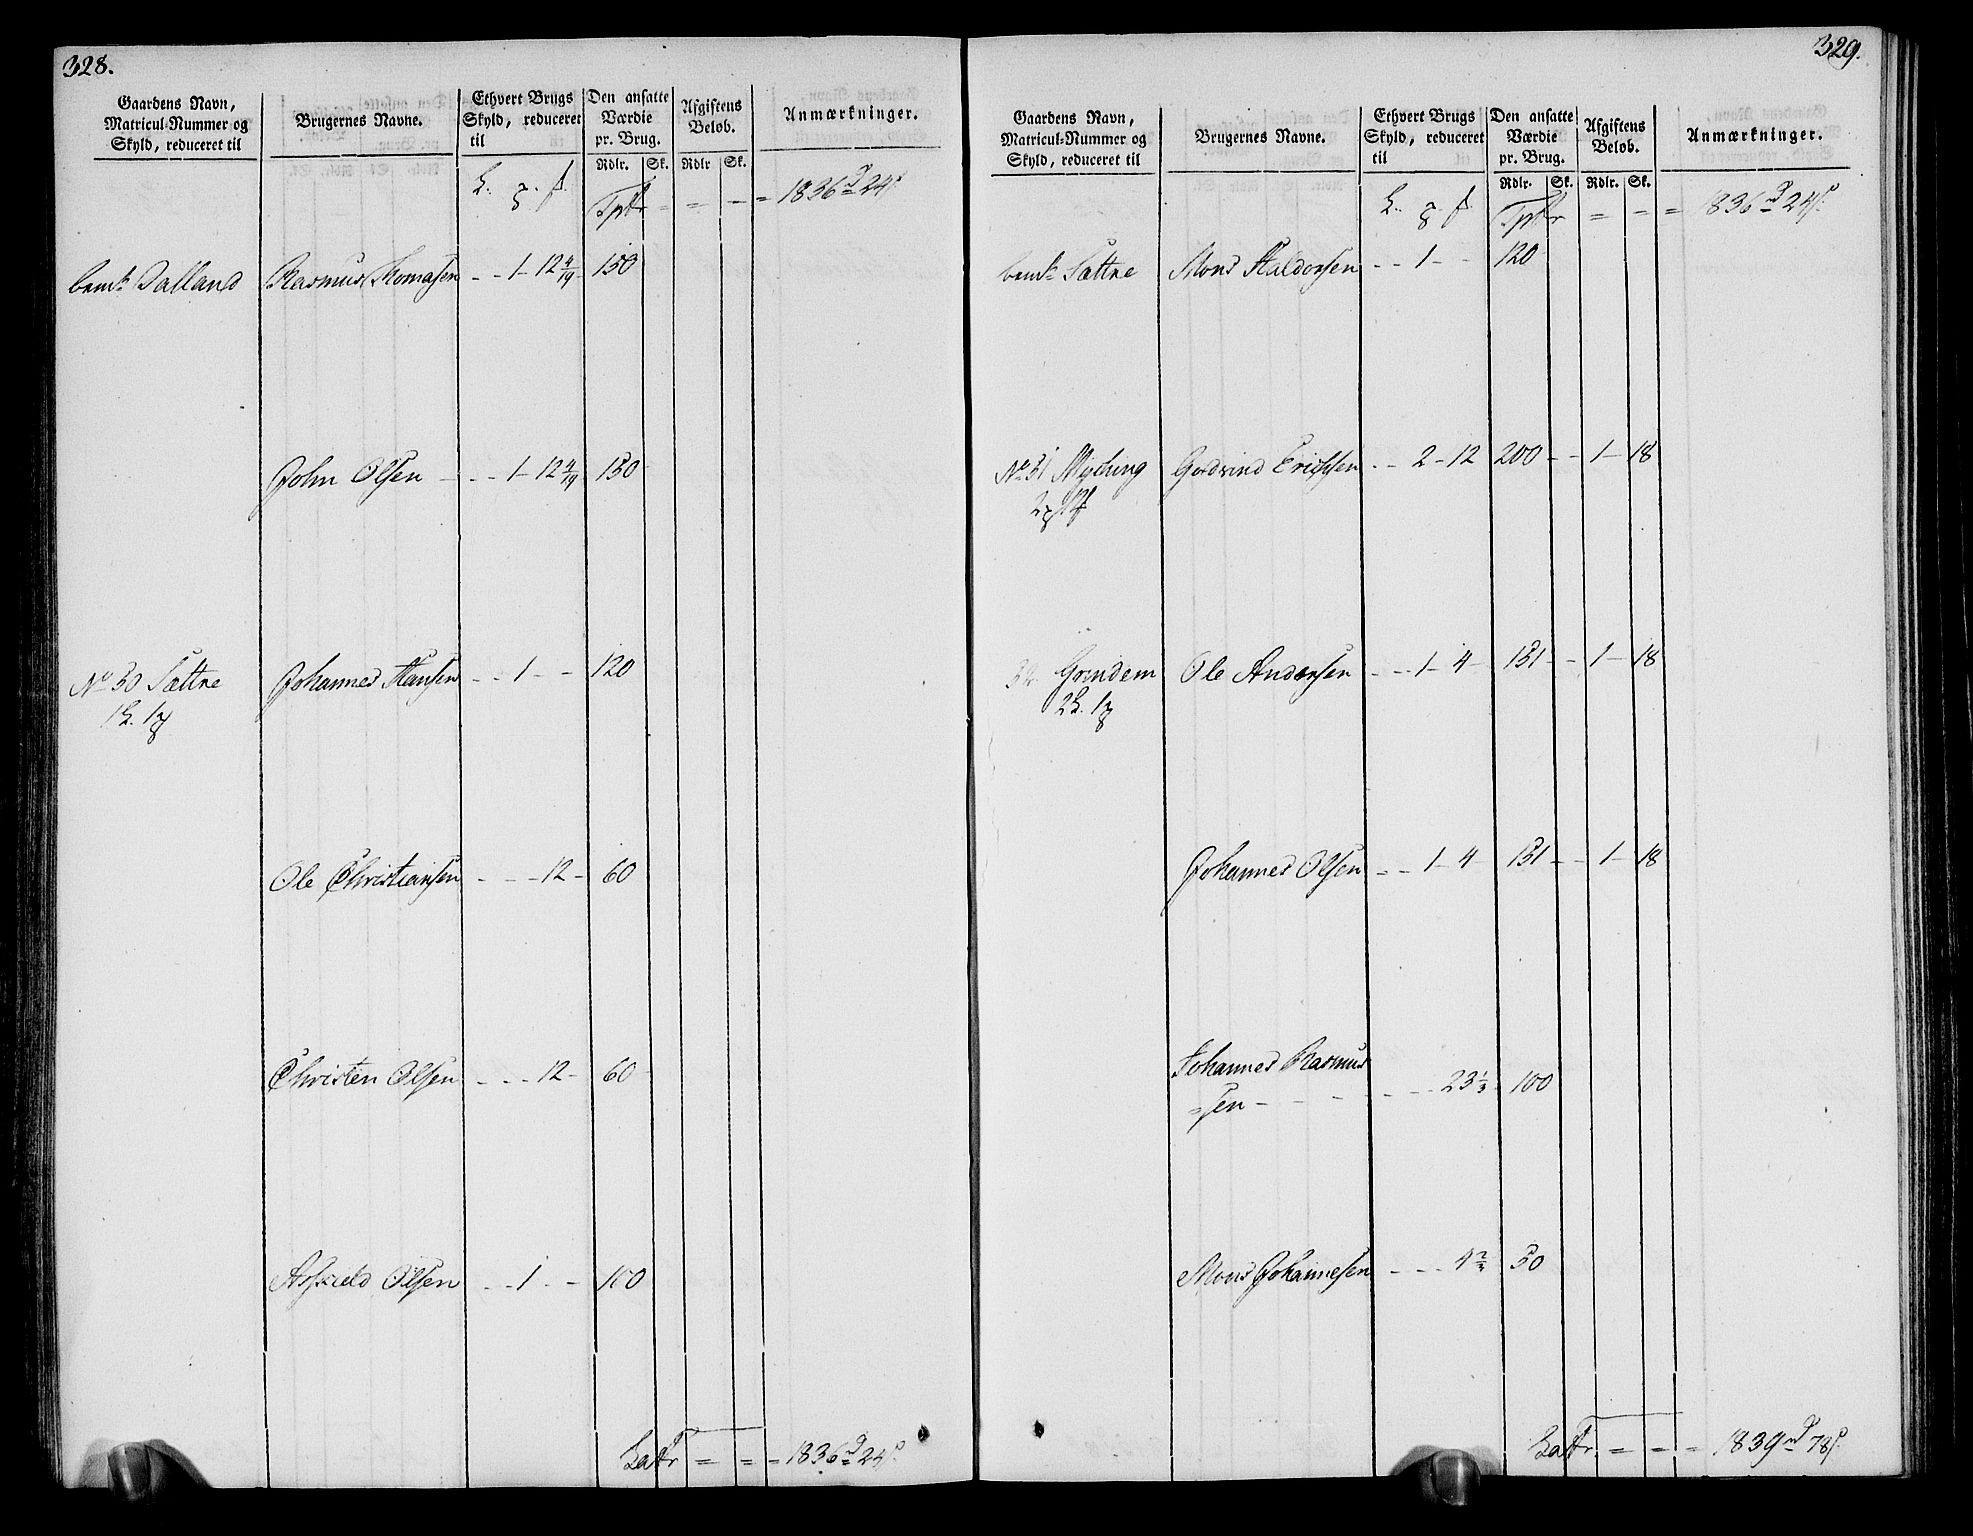 328.
Gaardens Navn, Matricul-Nummer og Skyld, reduceret til
Brugernes Navne.
Ethvert Brugs Skyld, reduceret til
Den ansatte Værdie pr. Brug.
Afgiftens Beløb.
Anmærkninger.
Rdlr. Sk. Rdlr Sk.
Tptr = = - = 1836 24
Dalland Rasmus Thomasen - - 1 - 12 4/19 - 150
John Olsen - - - 1 - 12 4/19 150
No 50 Sættre Johannes Hansen - - 1 - - 120
Ole Christiansen - - - 12 - 60
Christen Olsen - - - 12 - 60
Olsen - - 1 - - 100
Latr = = = 1836 24
329.
Gaardens Navn, Matricul-Nummer og Skyld, reduceret til
Brugernes Navne.
Ethvert Brugs Skyld, reduceret til
Den ansatte Værdie pr. Brug.
Afgiftens Beløb.
Anmærkninger.
Rdlr. Sk. Rdlr. Sk.
Tptr = - = 1836 24
Sættre Mons Haldorsen - - 1 - - 120
No 51 Myching Godvind Erichsen - - 2 - 12 200 - - 1 - 18
Grindem Ole Andersen - - 1 - 4 - 151 - - 1 - 18
Johannes Olsen - - 1 - 4 - 151 - - 1 - 18
Johannes Rasmus
=sen - - - - - - 23 1/3 - 100
Mons Johannesen - - - 4 2/3 50
Latr = = = 1839 78